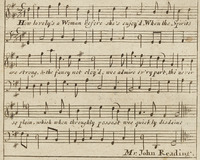 How lovely's a Woman before she's enjoy'd, When the Spirits
are strong, & the fancy not cloy'd, we admire ev'ry part, tho' ne'er
so plain, which when throughly possest we quickly disdain
Mr John Reading.